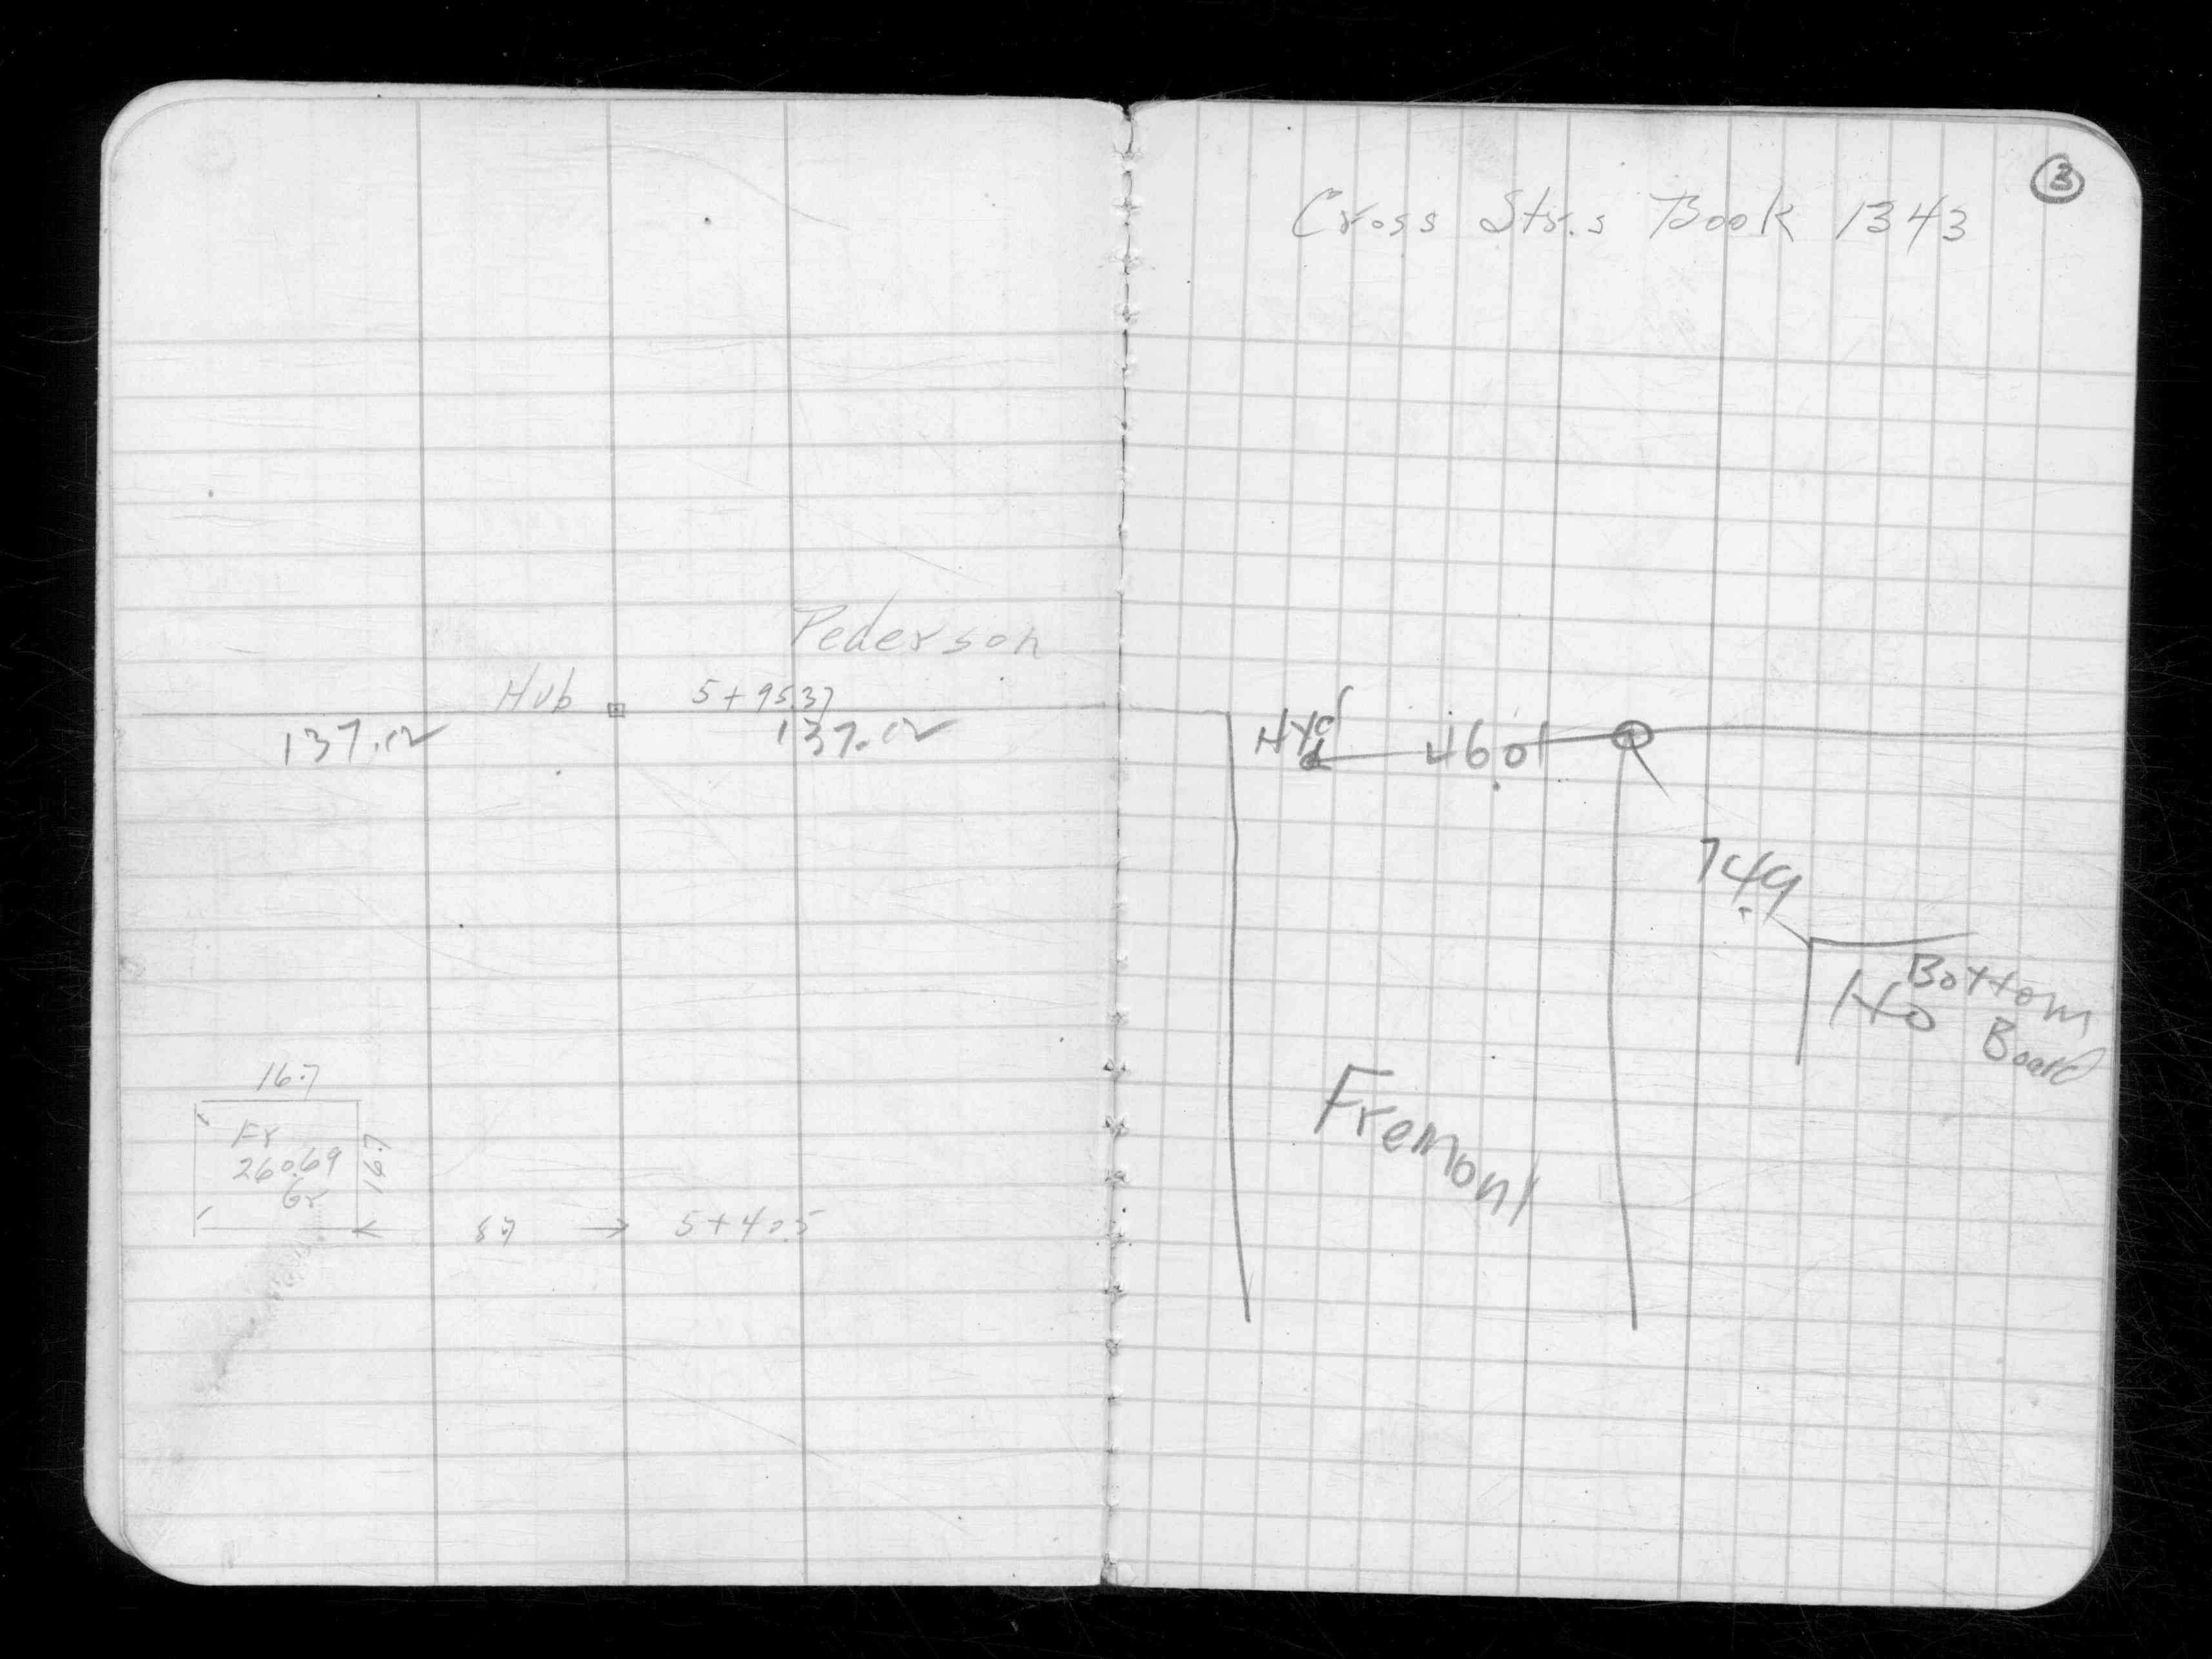 Pederson
Hub 5+95.37
137.02 137.02
16.7
Fr
260.69
Gr
16.7
87 → 5+40.5
3
Cross Str.s Book 1343
Hyd 46.01
74.9
Bottom
Ho Board
Fremont